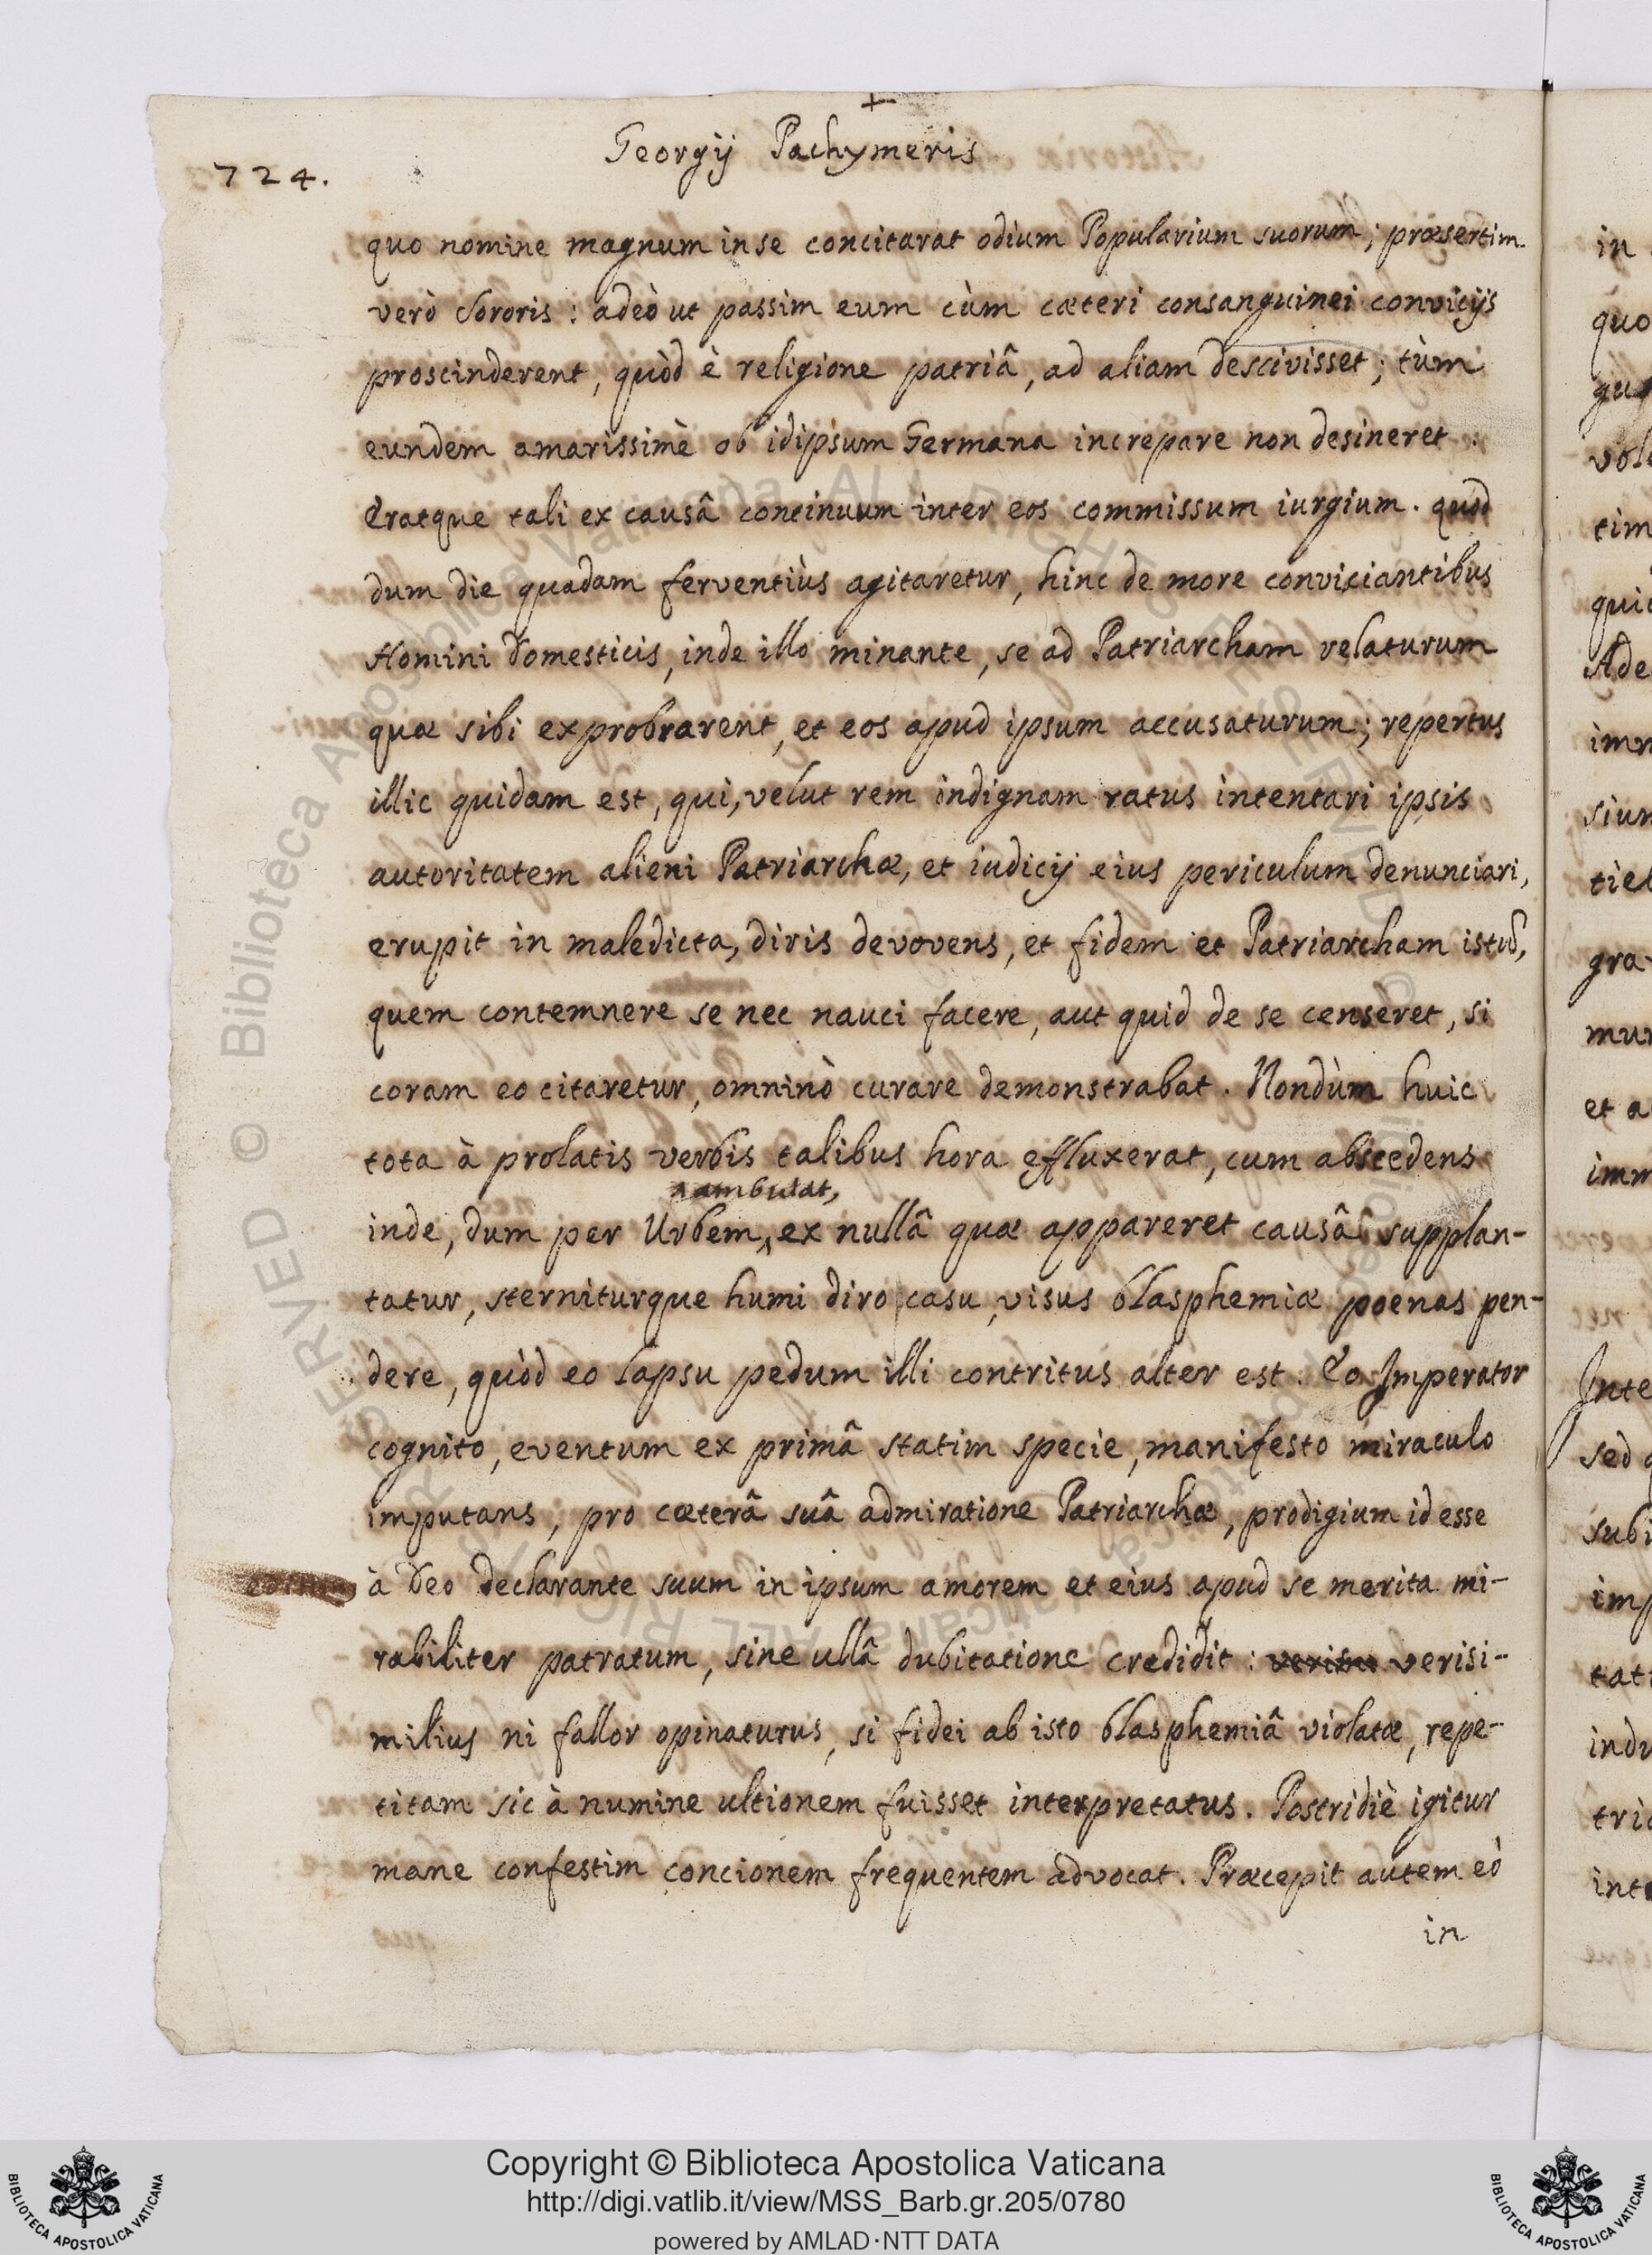 Georgij Pachymeris
724.
quo nomine magnum in se concitarat odium Popularium suorum; præsertim
verò Sororis: adeò ut passim eum cùm cæteri consanguinei convicijs
proscinderent, quòd è religione patriâ, ad aliam descivisset; tùm
eundem amarissimè ob idipsum Germana increpare non desineret.
Eratque tali ex causâ continuum inter eos commissum iurgium. quod
dum die quadam ferventiùs agitaretur, hinc de more conviciantibus
Homini Domesticis, inde illo minante, se ad Patriarcham relaturum
quæ sibi exprobrarent, et eos apud ipsum accusaturum; repertus
illic quidam est, qui, velut rem indignam ratus intentari ipsis
autoritatem alieni Patriarchæ, et iudicij eius periculum denunciari,
erupit in maledicta, diris devovens, et fidem et Patriarcham istud,
quem contemnere se nec nauci facere, aut quid de se censeret, si
coram eo citaretur, omninò curare demonstrabat. Nondùm huic
tota à prolatis verbis talibus hora effluxerat, cum abscedens
ambulat,
inde, dum per Urbem, ex nullâ quæ appareret causâ supplan-
tatur, sterniturque humi diro casu, visus blasphemiæ poenas pen-
dere, quòd eo lapsu pedum illi contritus alter est. Eo Imperator
cognito, eventum ex primâ statim specie, manifesto miraculo
imputans; pro cæterâ suâ admiratione Patriarchæ, prodigium id esse
à Deo declarante suum in ipsum amorem et eius apud se merita mi-
rabiliter patratum, sine ullâ dubitatione credidit: verisi-
milius ni fallor opinaturus, si fidei ab isto blasphemiâ violatæ, repe-
titam sic à numine ultionem fuisset interpretatus. Postridiè igitur
mane confestim concionem frequentem advocat. Præcepit autem eò
in
in
quo
volu
tim
qui
Ade
imm
sium
tiel
gra
mun
et a
imm
Inte
sed
subi
imp
tati
indu
tria
inte
© Biblioteca Apostolica Vaticana ALL RIGHTS RESERVED
© Biblioteca Apostolica Vaticana ALL RIGHTS RESERVED
Copyright © Biblioteca Apostolica Vaticana
http://digi.vatlib.it/view/MSS_Barb.gr.205/0780
powered by AMLAD·NTT DATA
BIBLIOTECA APOSTOLICA VATICANA
BIBLIOTECA APOSTOLICA VATICANA